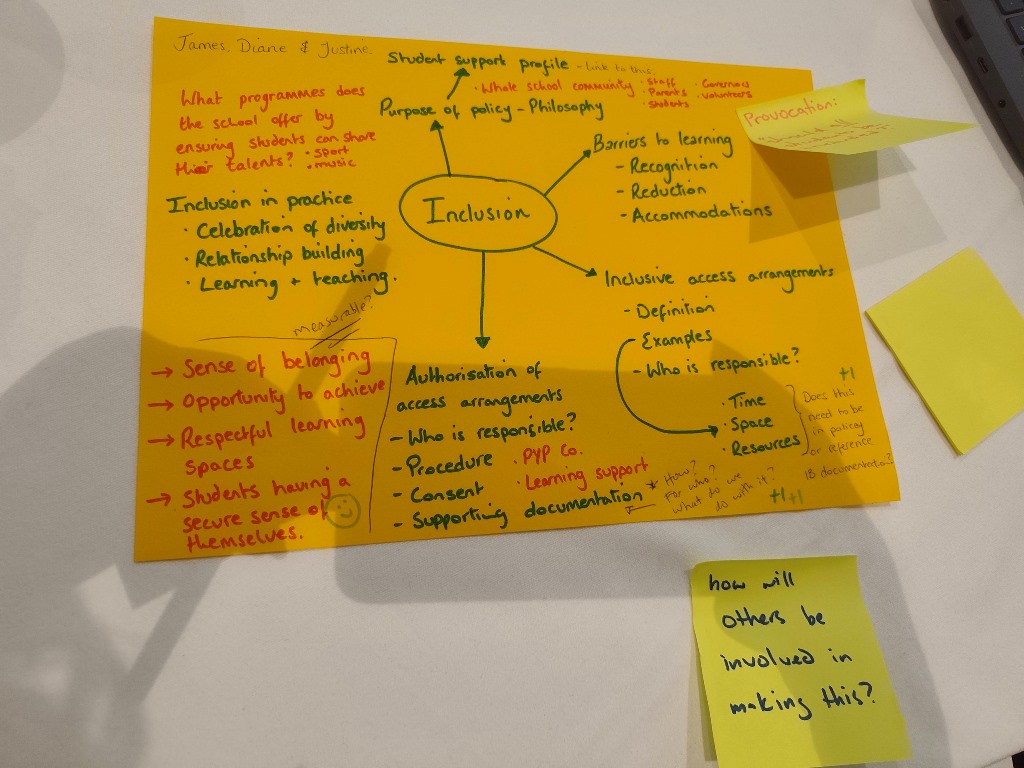 James, Diane & Justine.
Student support profile - Link to this.
• Whole school community • Staff • Parents • Students • Governors • Volunteers
Purpose of policy - Philosophy
What programmes does
the school offer by
ensuring students can share
their talents? • sport
• music
Inclusion
Barriers to learning
- Recognition
- Reduction
- Accommodations
Provocation:
Inclusion in practice
• Celebration of diversity
• Relationship building
• Learning + teaching.
Inclusive access arrangements
- Definition
- Examples
- Who is responsible?
• Time
• Space
• Resources
+1
Does this
need to be
in policy
or reference
IB documentation?
measurable?
→ Sense of belonging
→ Opportunity to achieve
→ Respectful learning
spaces
→ Students having a
secure sense of
themselves.
Authorisation of
access arrangements
- Who is responsible?
- Procedure • PYP Co.
- Consent • Learning support
- Supporting documentation
* How?
For who?
what do we
do with it?
+1 +1
how will
others be
involved in
making this?